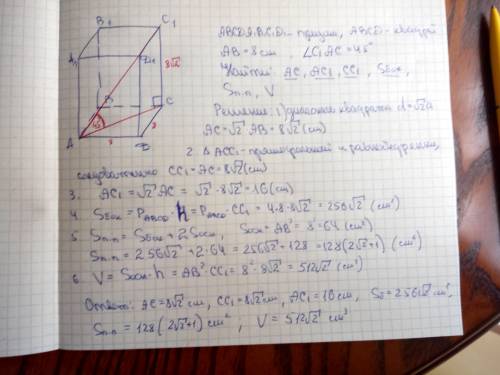 B₁ C₁
A₁ D₁
8√2
B C
45°
A 8 D 8
ABCDA₁B₁C₁D₁ - призма, ABCD - квадрат
AB = 8 cm, ∠C₁AC = 45°
Найти: AC, AC₁, CC₁, Sбок,
Sп.п, V
Решение: 1) диагональ квадрата d = √2a
AC = √2 AB = 8√2 (cm)
2. Δ ACC₁ - прямоугольный и равнобедренный,
следовательно CC₁ = AC = 8√2 (cm)
3. AC₁ = √2 AC = √2 · 8√2 = 16 (cm)
4. Sбок = P_ABCD · h = P_ABCD · CC₁ = 4·8·8√2 = 256√2 (cm²)
5. Sп.п = Sбок + 2Sосн, Sосн = AB² = 8² = 64 (cm²)
Sп.п = 256√2 + 2·64 = 256√2 + 128 = 128(2√2+1) (cm²)
6. V = Sосн·h = AB²·CC₁ = 8²·8√2 = 512√2 (cm³)
Ответ: AC = 8√2 cm, CC₁ = 8√2 cm, AC₁ = 16 cm, Sб = 256√2 cm²,
Sп.п = 128(2√2+1) cm², V = 512√2 cm³